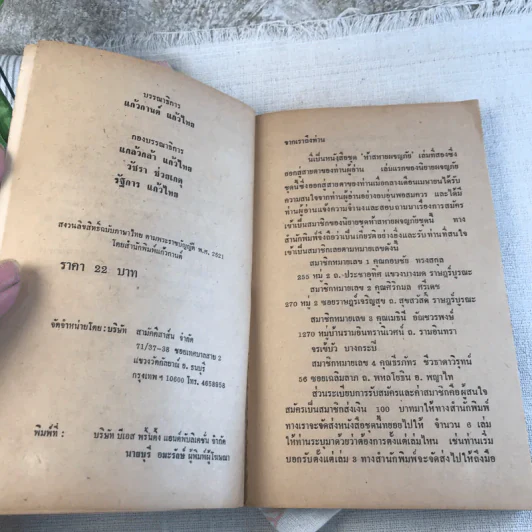 บรรณาธิการ
แก้วกานต์ แก้วไทย
กองบรรณาธิการ
แกล้วกล้า แก้วไทย
วัชรา ช่วยเกตุ
รัฐการ แก้วไทย
สงวนลิขสิทธิ์ฉบับภาษาไทย ตามพระราชบัญญัติ พ.ศ. 2521
โดยสำนักพิมพ์แก้วกานต์
ราคา 22 บาท
จัดจำหน่ายโดย : บริษัท สามัคคีสาส์น จำกัด
71/37-38 ซอยเทศบาลสาย 2
แขวงวัดกัลยาณ์ อ. ธนบุรี
กรุงเทพฯ 10600 โทร. 4658958
พิมพ์ที่ : บริษัท บีเอส พริ้นติ้ง แอนด์พับลิเคชั่น จำกัด
นายบุรี อมะรักษ์ ผู้พิมพ์ผู้โฆษณา
จากเราถึงท่าน
นี่เป็นหนังสือชุด "ห้าสหายผจญภัย" เล่มที่สองซึ่ง
ออกสู่สายตาของท่านผู้อ่าน เล่มแรกของนิยายผจญภัย
ชุดนี้ซึ่งออกสู่สายตาของท่านเมื่อกลางเดือนเมษายนได้รับ
ความสนใจจากท่านผู้อ่านอย่างอบอุ่นพอสมควร และได้มี
ท่านผู้อ่านแจ้งความจำนงและสอบถามมาเรื่องการสมัคร
เข้าเป็นสมาชิกของนิยายชุดห้าสหายผจญภัยชุดนี้ ทาง
สำนักพิมพ์จึงถือว่าเป็นเกียรติอย่างยิ่งและรับท่านที่สนใจ
เข้าเป็นสมาชิกเลยตามหมายเลขดังนี้
สมาชิกหมายเลข 1 คุณกอบชัย ทรงสกุล
255 หมู่ 2 ถ.ประชาอุทิศ แขวงบางมด ราษฎร์บูรณะ
สมาชิกหมายเลข 2 คุณศิริกมล ศรีเดช
270 หมู่ 2 ซอยราษฎร์เจริญสุข ถ. สุขสวัสดิ์ ราษฎร์บูรณะ
สมาชิกหมายเลข 3 คุณเมธินี อัฒชวรพงษ์
1270 หมู่บ้านรามอินทรานิเวศน์ ถ. รามอินทรา
จรเข้บัว บางกะปิ
สมาชิกหมายเลข 4 คุณธีรภัทร ชีวธาดาวิรุทน์
56 ซอยเฉลิมลาภ ถ. พหลโยธิน อ. พญาไท
ส่วนระเบียบการรับสมัครและค่าสมาชิกคือผู้สนใจ
สมัครเป็นสมาชิกส่งเงิน 100 บาทมาให้ทางสำนักพิมพ์
ทางเราจะจัดส่งหนังสือชุดนี้ทยอยไปให้ จำนวน 6 เล่ม
ให้ท่านระบุมาด้วยว่าต้องการตั้งแต่เล่มไหน เช่นท่านเริ่ม
บอกรับตั้งแต่เล่ม 3 ทางสำนักพิมพ์จะจัดส่งไปให้ถึงมือ